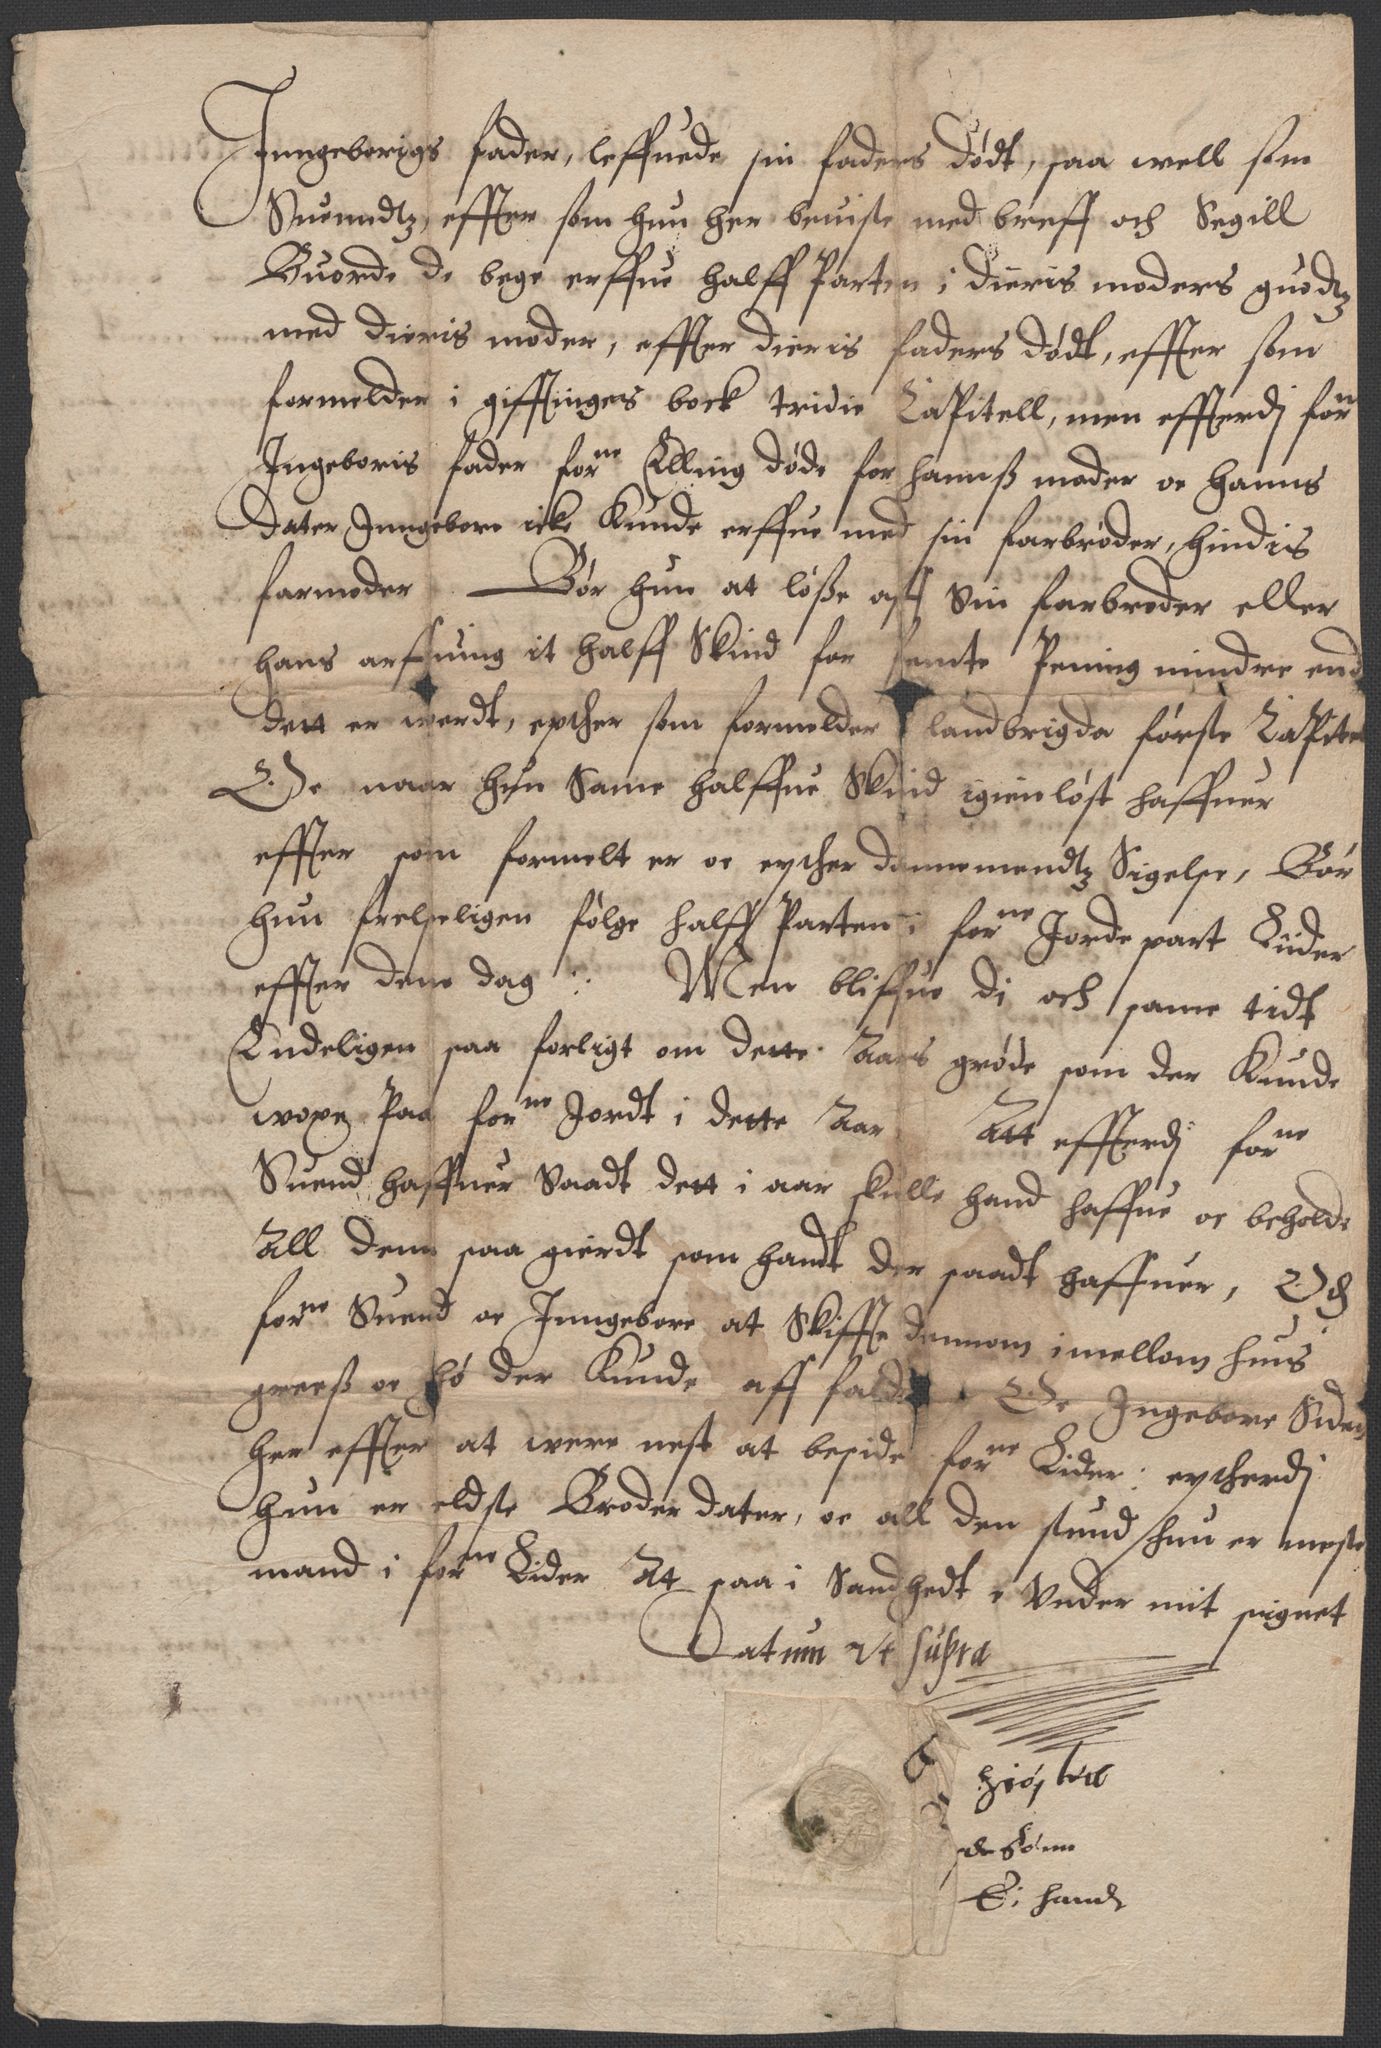 Inngeborigs fader, leffuede sin faders dødt, saa well som
Suenndtz, effter som hun her beuiste med breff och Segill
Buorde de bege erffue halff Parten i dieris moders guodtz
med dieris moder, effter dieris faders dødt, effter som
formelder i gifftinges bock tridie Capitell, men effterdj forne
Ingeboris fader forne Elling døde for hannß moder oc hanns
dater Inngebore icke kunde erffue med sin farbroder, hindis
farmoder Bør hun at løße aff Sin farbroder eller
hans arffuing it halff Skind for femte Pening mindre end
dett er werdt, epther som formelder landbrigda første Capitel
Oc naar hun Same halffue Skind igienløst haffuer
effter som formelt er oc epther dannemendtz Sigelse, Bør
hun frelseligen følge halff Parten i forne Jorde part Lider
effter denne dag :· Men bliffue di och same tidt
Endeligen saa forligt om dette Aars grøde som der kunde
woxe paa forne Jordt i dette Aar Att effterdj forne
Suend haffuer Saadt dett i aar skulle hand haffue oc beholde
All denn saa gierdt som handt der saadt haffuer, Och
forne Suend oc Inngebore at Skiffte dennom imellom huis
greeß oc hø der kunde aff falde Oc Ingebore Siden
her effter at were nest at beside forne Lider: eptherdj
hun er eldste Broder dater, oc all den stund hun er meste
mand i forne Lider At saa i Sandhedt er Vnder mit signet
Datum Vt supra
E: handt